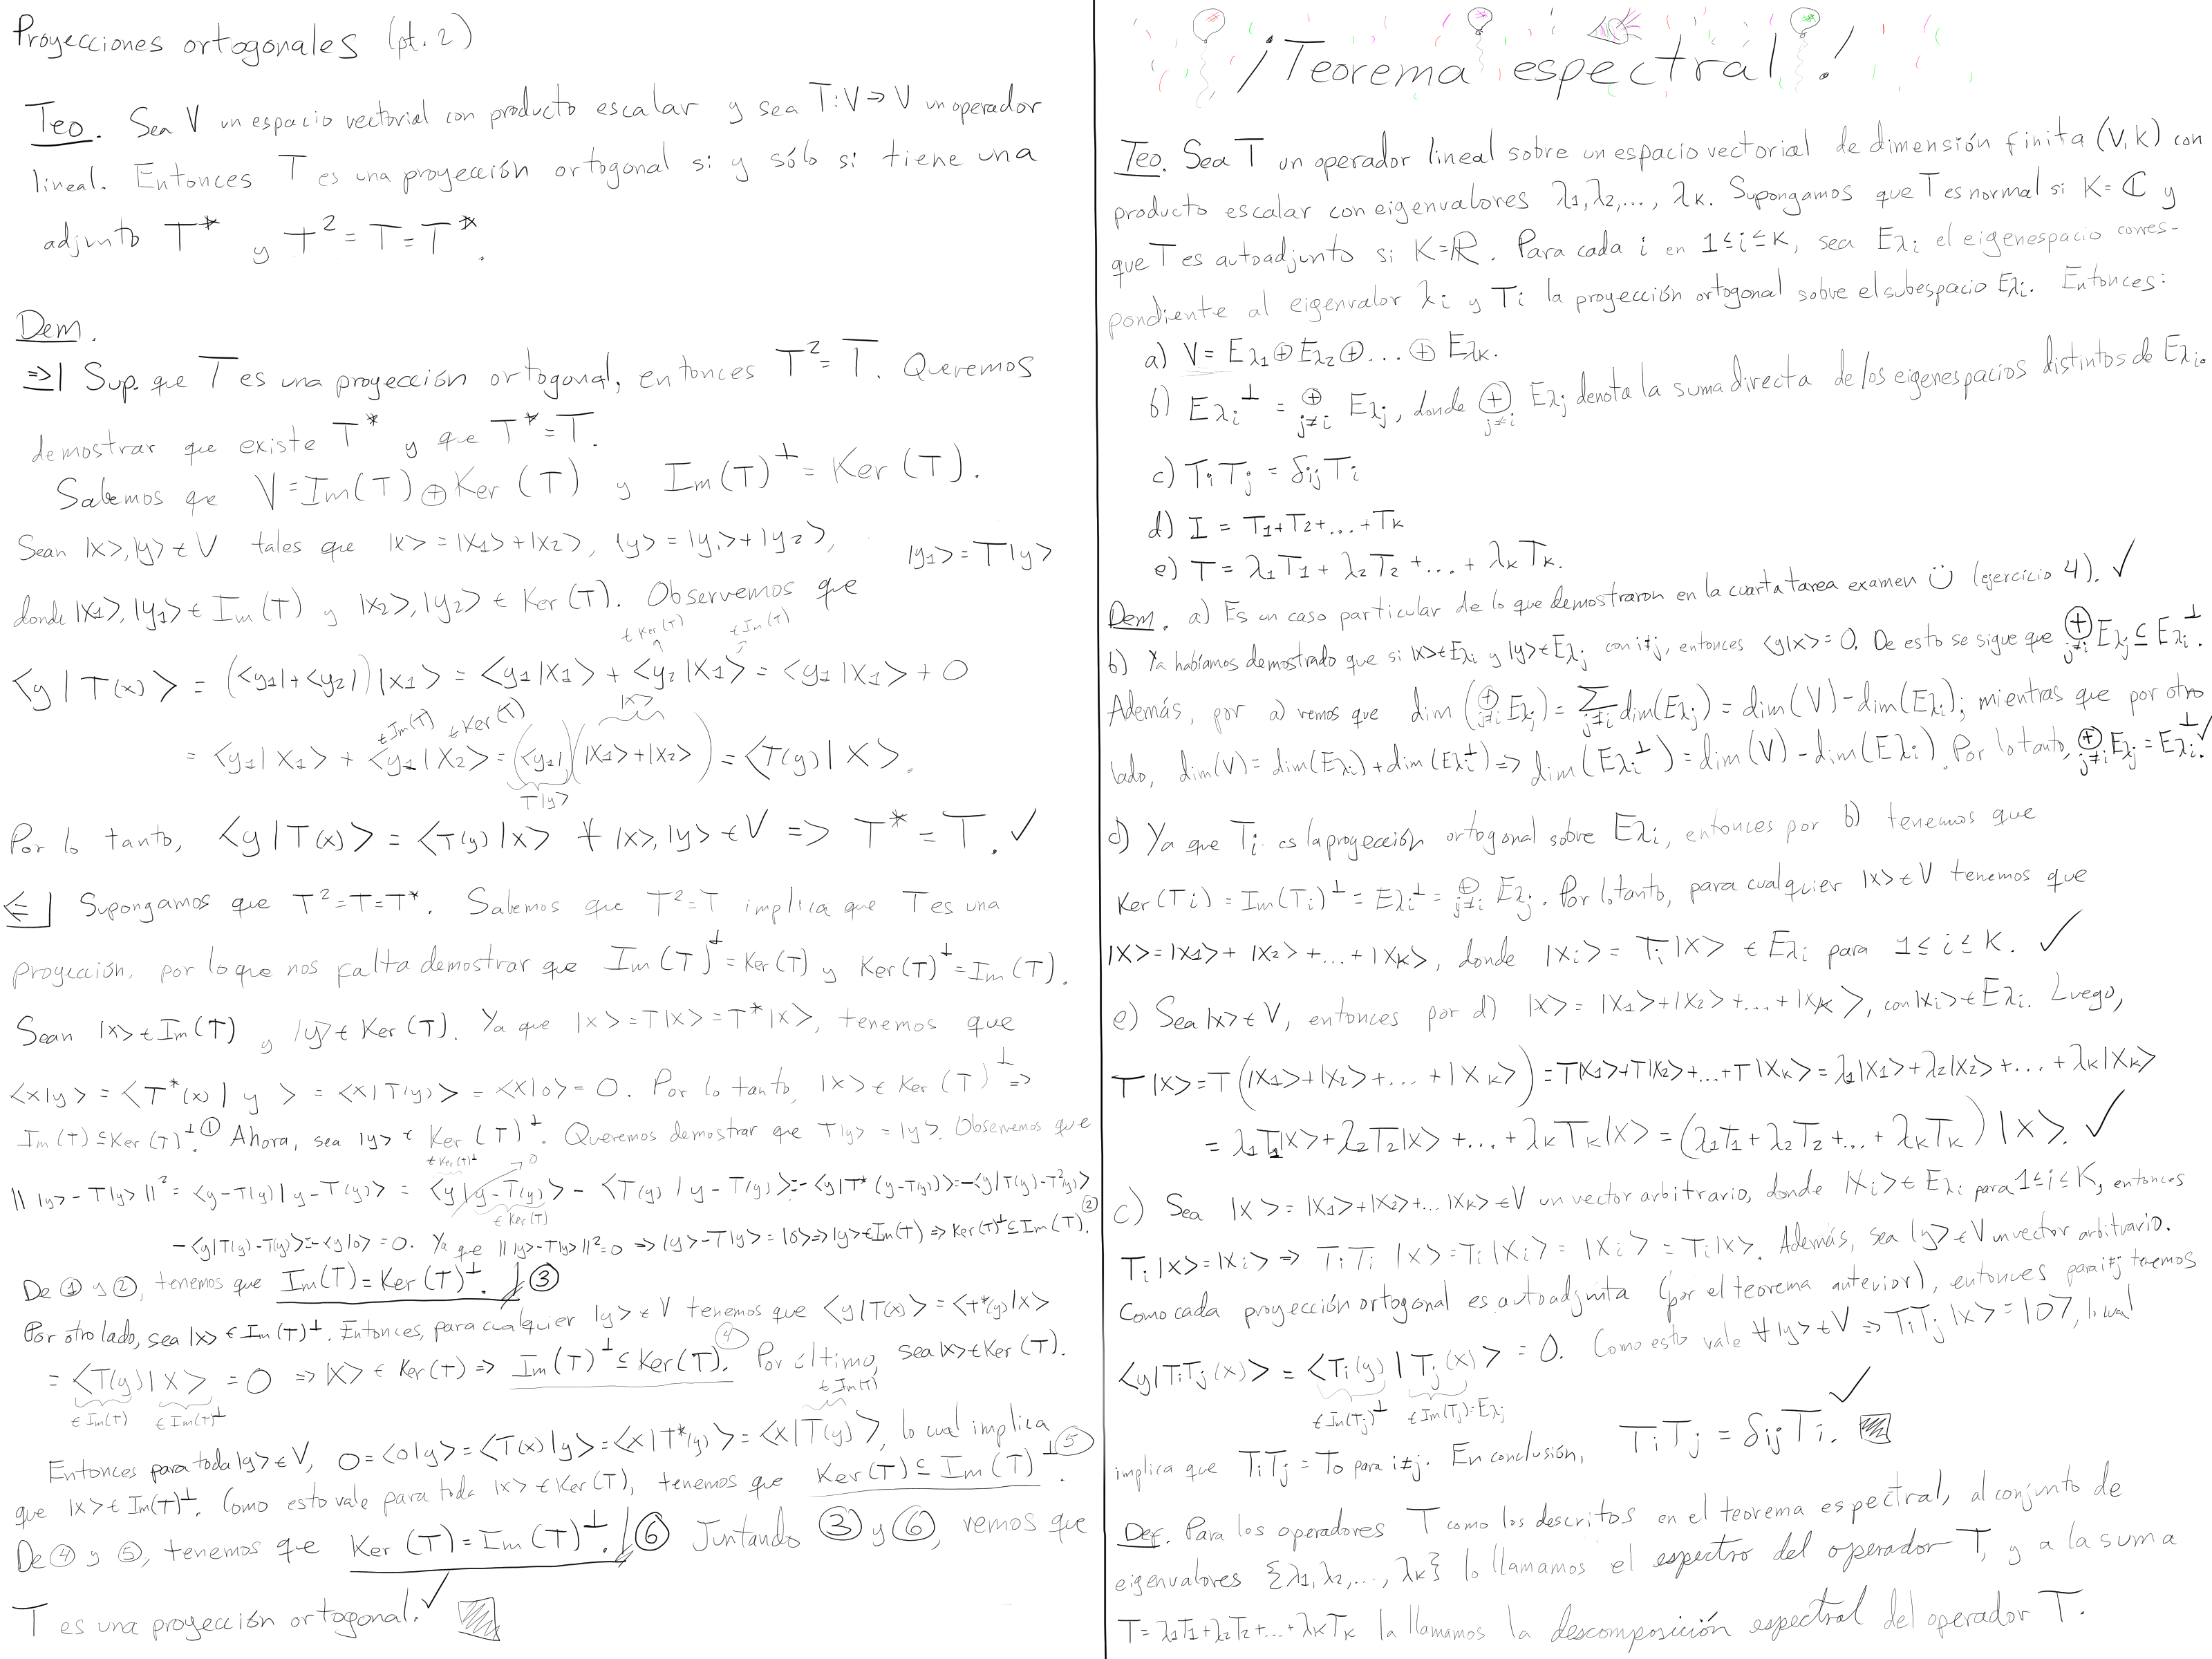 Proyecciones ortogonales (pt. 2)
Teo. Sea V un espacio vectorial con producto escalar y sea T:V→V un operador
lineal. Entonces T es una proyección ortogonal si y sólo si tiene una
adjunto T* y T²=T=T*.
Dem.
⇒| Sup. que T es una proyección ortogonal, entonces T²=T. Queremos
demostrar que existe T* y que T*=T.
Sabemos que V=Im(T)⊕Ker(T) y Im(T)^⊥=Ker(T).
Sean |x>,|y>∈V tales que |x>=|x1>+|x2>, |y>=|y1>+|y2>, |y1>=T|y>
donde |x1>,|y1>∈Im(T) y |x2>,|y2>∈Ker(T). Observemos que
∈Ker(T) ∈Im(T)
<y|T(x)> = (<y1|+<y2|)|x1> = <y1|x1> + <y2|x1> = <y1|x1> + 0
∈Im(T) ∈Ker(T) |x>
= <y1|x1> + <y1|x2> = (<y1|)(|x1>+|x2>) = <T(y)|x>.
T|y>
Por lo tanto, <y|T(x)> = <T(y)|x> ∀|x>,|y>∈V => T*=T. ✓
⇐| Supongamos que T²=T=T*. Sabemos que T²=T implica que T es una
proyección, por lo que nos falta demostrar que Im(T)^⊥=Ker(T) y Ker(T)^⊥=Im(T).
Sean |x>∈Im(T) y |y>∈Ker(T). Ya que |x>=T|x>=T*|x>, tenemos que
<x|y> = <T*(x)|y> = <x|T(y)> = <x|0> = 0. Por lo tanto, |x>∈Ker(T)^⊥ =>
Im(T)⊆Ker(T)^⊥. ① Ahora, sea |y>∈Ker(T)^⊥. Queremos demostrar que T|y>=|y>. Observemos que
∈Ker(T)^⊥ 0
|| |y>-T|y> ||² = <y-T(y)|y-T(y)> = <y|y-T(y)> - <T(y)|y-T(y)> = -<y|T*(y-T(y))> = -<y|T(y)-T²(y)>
∈Ker(T)
-<y|T(y)-T(y)> = -<y|0> = 0. Ya que || |y>-T|y> ||²=0 => |y>-T|y>=|0> => |y>∈Im(T) => Ker(T)^⊥⊆Im(T). ②
De ① y ②, tenemos que Im(T)=Ker(T)^⊥. ③
Por otro lado, sea |x>∈Im(T)^⊥. Entonces, para cualquier |y>∈V tenemos que <y|T(x)> = <T*(y)|x>
= <T(y)|x> = 0 => |x>∈Ker(T) => Im(T)^⊥⊆Ker(T). ④ Por último, sea |x>∈Ker(T).
∈Im(T) ∈Im(T)^⊥ ∈Im(T)
Entonces para toda |y>∈V, 0=<0|y>=<T(x)|y>=<x|T*(y)>=<x|T(y)>, lo cual implica
que |x>∈Im(T)^⊥. Como esto vale para toda |x>∈Ker(T), tenemos que Ker(T)⊆Im(T)^⊥. ⑤
De ④ y ⑤, tenemos que Ker(T)=Im(T)^⊥. ⑥ Juntando ③ y ⑥, vemos que
T es una proyección ortogonal. ✓
¡Teorema espectral!
Teo. Sea T un operador lineal sobre un espacio vectorial de dimensión finita (V,K) con
producto escalar con eigenvalores λ1,λ2,...,λk. Supongamos que T es normal si K=ℂ y
que T es autoadjunto si K=ℝ. Para cada i en 1≤i≤k, sea Eλi el eigenespacio corres-
pondiente al eigenvalor λi y Ti la proyección ortogonal sobre el subespacio Eλi. Entonces:
a) V= Eλ1⊕Eλ2⊕...⊕Eλk.
b) Eλi^⊥ = ⊕j≠i Eλj, donde ⊕j≠i Eλj denota la suma directa de los eigenespacios distintos de Eλi.
c) TiTj = δijTi
d) I = T1+T2+...+Tk
e) T = λ1T1+λ2T2+...+λkTk.
Dem. a) Es un caso particular de lo que demostraron en la cuarta tarea examen Ü (ejercicio 4). ✓
b) Ya habíamos demostrado que si |x>∈Eλi y |y>∈Eλj con i≠j, entonces <y|x>=0. De esto se sigue que ⊕j≠i Eλj⊆Eλi^⊥.
Además, por a) vemos que dim(⊕j≠i Eλj) = Σj≠i dim(Eλj) = dim(V)-dim(Eλi); mientras que por otro
lado, dim(V)=dim(Eλi)+dim(Eλi^⊥) => dim(Eλi^⊥) = dim(V)-dim(Eλi). Por lo tanto, ⊕j≠i Eλj=Eλi^⊥. ✓
d) Ya que Ti es la proyección ortogonal sobre Eλi, entonces por b) tenemos que
Ker(Ti) = Im(Ti)^⊥ = Eλi^⊥ = ⊕j≠i Eλj. Por lo tanto, para cualquier |x>∈V tenemos que
|x>=|x1>+|x2>+...+|xk>, donde |xi> = Ti|x> ∈Eλi para 1≤i≤k. ✓
e) Sea |x>∈V, entonces por d) |x>=|x1>+|x2>+...+|xk>, con |xi>∈Eλi. Luego,
T|x>=T(|x1>+|x2>+...+|xk>)=T|x1>+T|x2>+...+T|xk>=λ1|x1>+λ2|x2>+...+λk|xk>
= λ1T1|x>+λ2T2|x>+...+λkTk|x> = (λ1T1+λ2T2+...+λkTk)|x>. ✓
c) Sea |x>=|x1>+|x2>+...|xk>∈V un vector arbitrario, donde |xi>∈Eλi para 1≤i≤k, entonces
Ti|x>=|xi> => TiTi|x>=Ti|xi>=|xi>=Ti|x>. Además, sea |y>∈V un vector arbitrario.
Como cada proyección ortogonal es autoadjunta (por el teorema anterior), entonces para i≠j tenemos
<y|TiTj(x)> = <Ti(y)|Tj(x)> = 0. Como esto vale ∀|y>∈V => TiTj|x>=|0>, lo cual
∈Im(Tj)^⊥ ∈Im(Tj)=Eλj
implica que TiTj=T0 para i≠j. En conclusión, TiTj=δijTi. ✓
Def. Para los operadores T como los descritos en el teorema espectral, al conjunto de
eigenvalores {λ1,λ2,...,λk} lo llamamos el espectro del operador T, y a la suma
T=λ1T1+λ2T2+...+λkTk la llamamos la descomposición espectral del operador T.